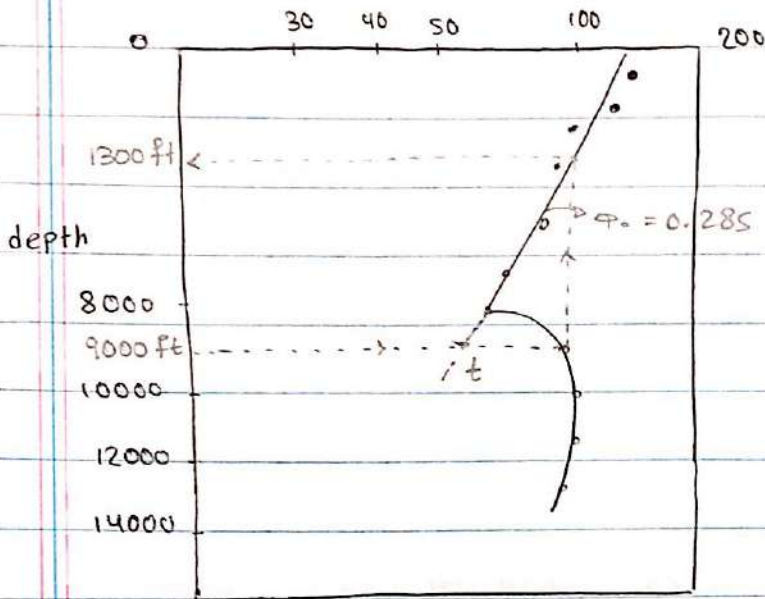 30 40 50 100 200
0
1300 ft
φ₀ = 0.285
depth
8000
9000 ft
t
10000
12000
14000